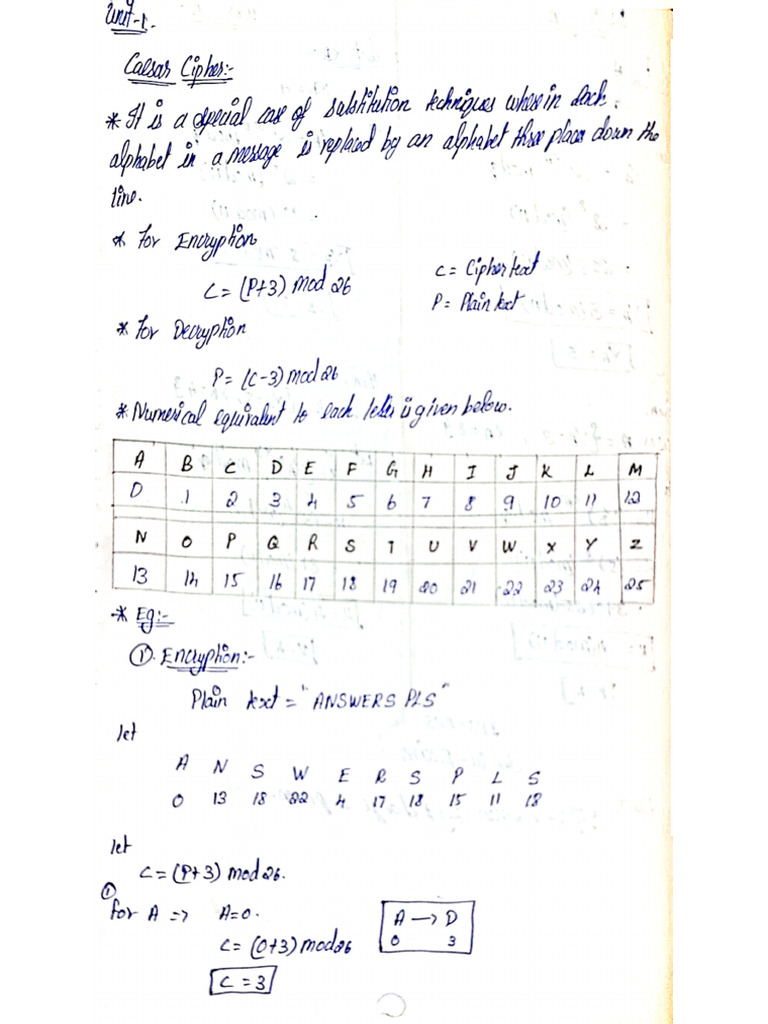 Unit-1.
Caesar Cipher:-
* It is a special case of substitution techniques wherein each
alphabet in a message is replaced by an alphabet three places down the
line.
* For Encryption
C = (P+3) mod 26
C = Cipher text
P = Plain text
* For Decryption
P = (C-3) mod 26
* Numerical equivalent to each letter is given below.
A B C D E F G H I J K L M
0 1 2 3 4 5 6 7 8 9 10 11 12
N O P Q R S T U V W X Y Z
13 14 15 16 17 18 19 20 21 22 23 24 25
* Eg:-
① Encryption:-
Plain text = "ANSWERS PLS"
let
A N S W E R S P L S
0 13 18 22 4 17 18 15 11 18
let
C = (P+3) mod 26.
①
for A => A=0.
C = (0+3) mod 26
C = 3
A → D
0 3